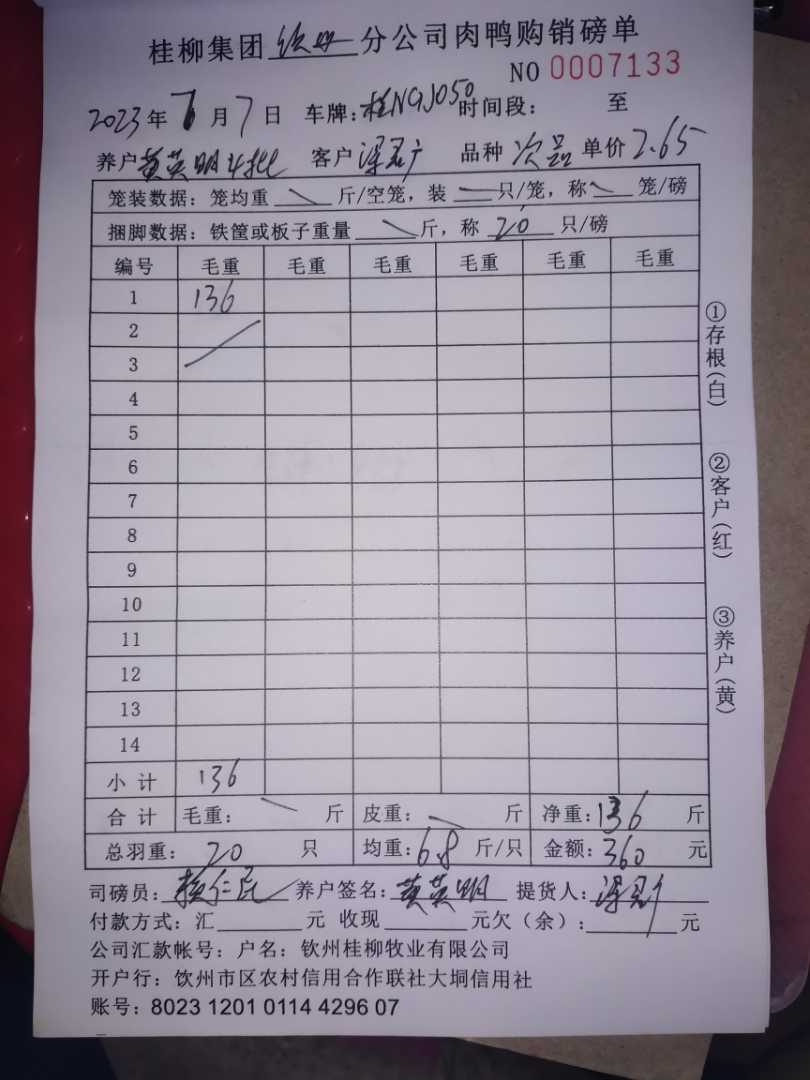 桂柳集团钦州分公司肉鸭购销磅单
NO 0007133
2023年7月7日 车牌:桂NGJ050 时间段: 至
养户黄英明4批 客户 品种 次品 单价2.65
笼装数据: 笼均重 斤/空笼, 装 只/笼, 称 笼/磅
捆脚数据: 铁筐或板子重量 斤, 称 20 只/磅
编号 毛重 毛重 毛重 毛重 毛重 毛重
1 136
2
3
4
5
6
7
8
9
10
11
12
13
14
小计 136
合计 毛重: 斤 皮重: 斤 净重:136 斤
总羽重: 20 只 均重:6.8 斤/只 金额:360 元
司磅员: 养户签名:黄英明 提货人:
付款方式: 汇 元 收现 元欠(余): 元
公司汇款帐号: 户名: 钦州桂柳牧业有限公司
开户行: 饮州市区农村信用合作联社大垌信用社
账号: 8023 1201 0114 4296 07
①存根(白)
②客户(红)
③养户(黄)